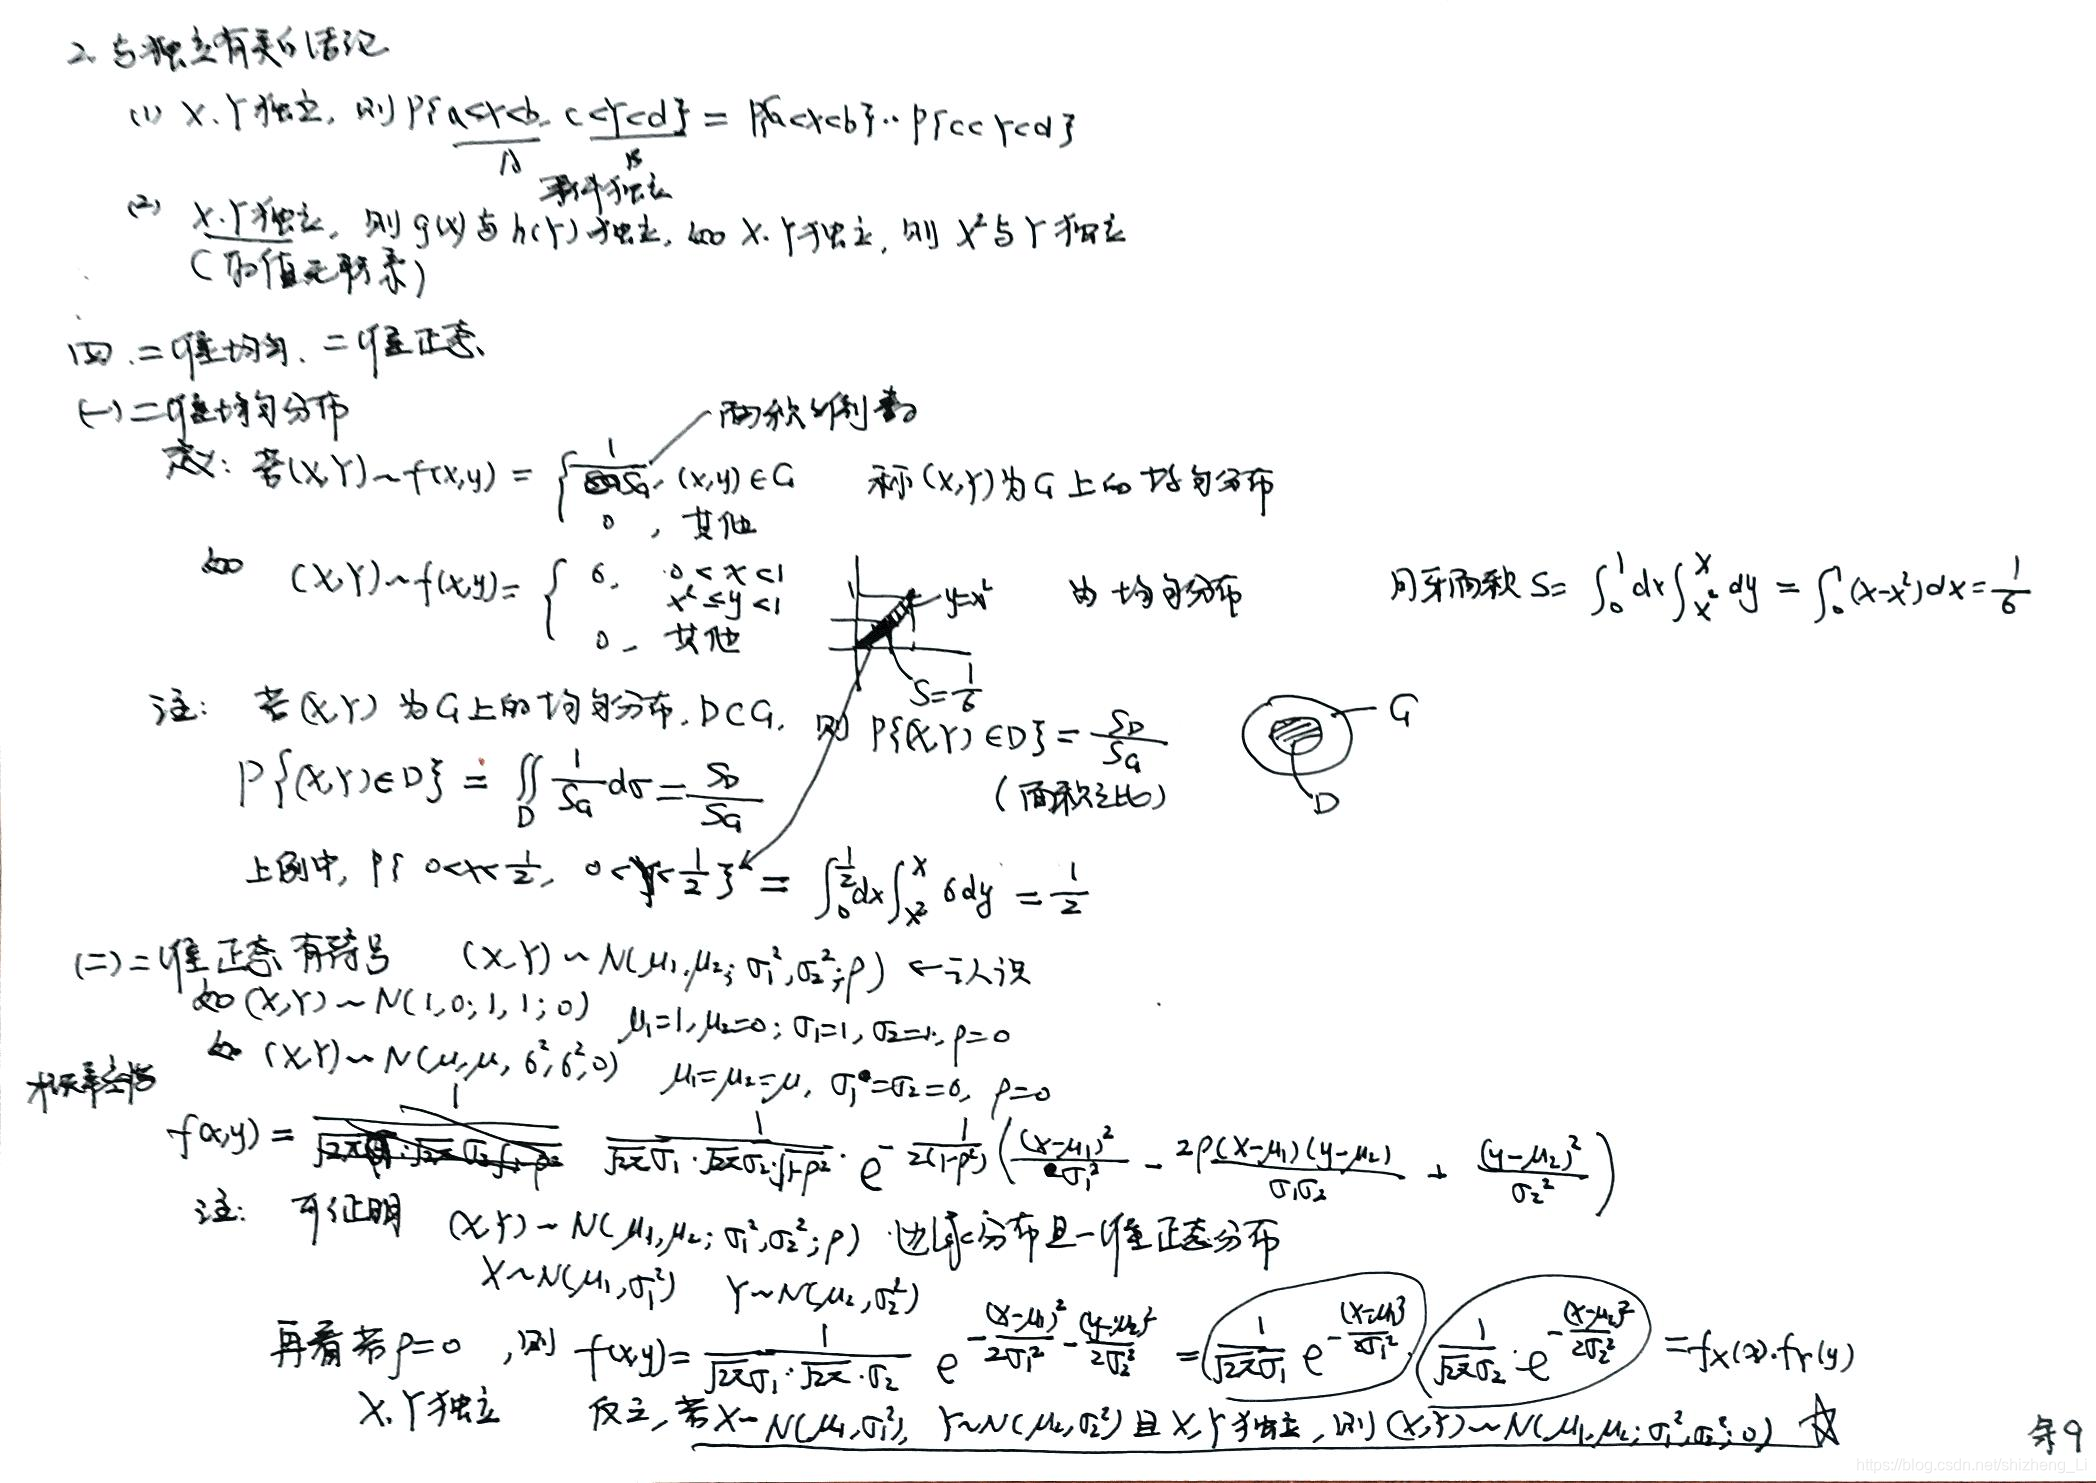 2. 与独立有关的结论
(1) X.Y独立, 则 P{a<X<b, c<Y<d} = P{a<X<b}·P{c<Y<d}
A B
事件独立
(2) X.Y独立, 则 g(X)与h(Y)独立, 如 X.Y独立, 则 X²与Y独立
(取值无联系)
四. 二维均匀. 二维正态
(一)二维均匀分布
面积倒数
定义: 若(X,Y)~f(x,y) = { 1/S_G, (x,y)∈G 称(X,Y)为G上的均匀分布
0, 其他
如 (X,Y)~f(x,y) = { 6, 0<x<1
x²≤y<1
0, 其他
y=x² 为均匀分布 月牙面积 S= ∫₀¹dx∫_{x²}^{x}dy = ∫₀¹(x-x²)dx = 1/6
S=1/6
注: 若(X,Y)为G上的均匀分布. D⊂G, 则 P{(X,Y)∈D} = S_D/S_G
G
P{(X,Y)∈D} = ∬_D 1/S_G dσ = S_D/S_G (面积之比)
D
上例中, P{0<X<1/2, 0<Y<1/2} = ∫₀^{1/2}dx∫_{x²}^{x} 6dy = 1/2
(二)二维正态 有符号 (X,Y)~N(μ₁,μ₂; σ₁²,σ₂²;ρ) ←认识
如(X,Y)~N(1,0;1,1;0) μ₁=1,μ₂=0; σ₁=1,σ₂=1, ρ=0
如 (X,Y)~N(μ,μ,6²,6²,0) μ₁=μ₂=μ, σ₁=σ₂=6, ρ=0
概率密度
f(x,y) = 1/(√2π σ₁·√2π σ₂·√1-ρ²) · e^{-1/(2(1-ρ²)) ((x-μ₁)²/σ₁² - 2ρ(x-μ₁)(y-μ₂)/(σ₁σ₂) + (y-μ₂)²/σ₂²)}
注: 可证明 (X,Y)~N(μ₁,μ₂;σ₁²,σ₂²;ρ) 边缘分布且一维正态分布
X~N(μ₁,σ₁²) Y~N(μ₂,σ₂²)
再看若ρ=0, 则 f(x,y)= 1/(√2π σ₁·√2π·σ₂) e^{-(x-μ₁)²/2σ₁² - (y-μ₂)²/2σ₂²} = 1/(√2π σ₁) e^{-(x-μ₁)²/2σ₁²} · 1/(√2π σ₂)·e^{-(x-μ₂)²/2σ₂²} =f_X(x)·f_Y(y)
X.Y独立 反之, 若X~N(μ₁,σ₁²), Y~N(μ₂,σ₂²)且X,Y独立, 则(X,Y)~N(μ₁,μ₂;σ₁²,σ₂²;0) ☆
余9
https://blog.csdn.net/shizheng_Li